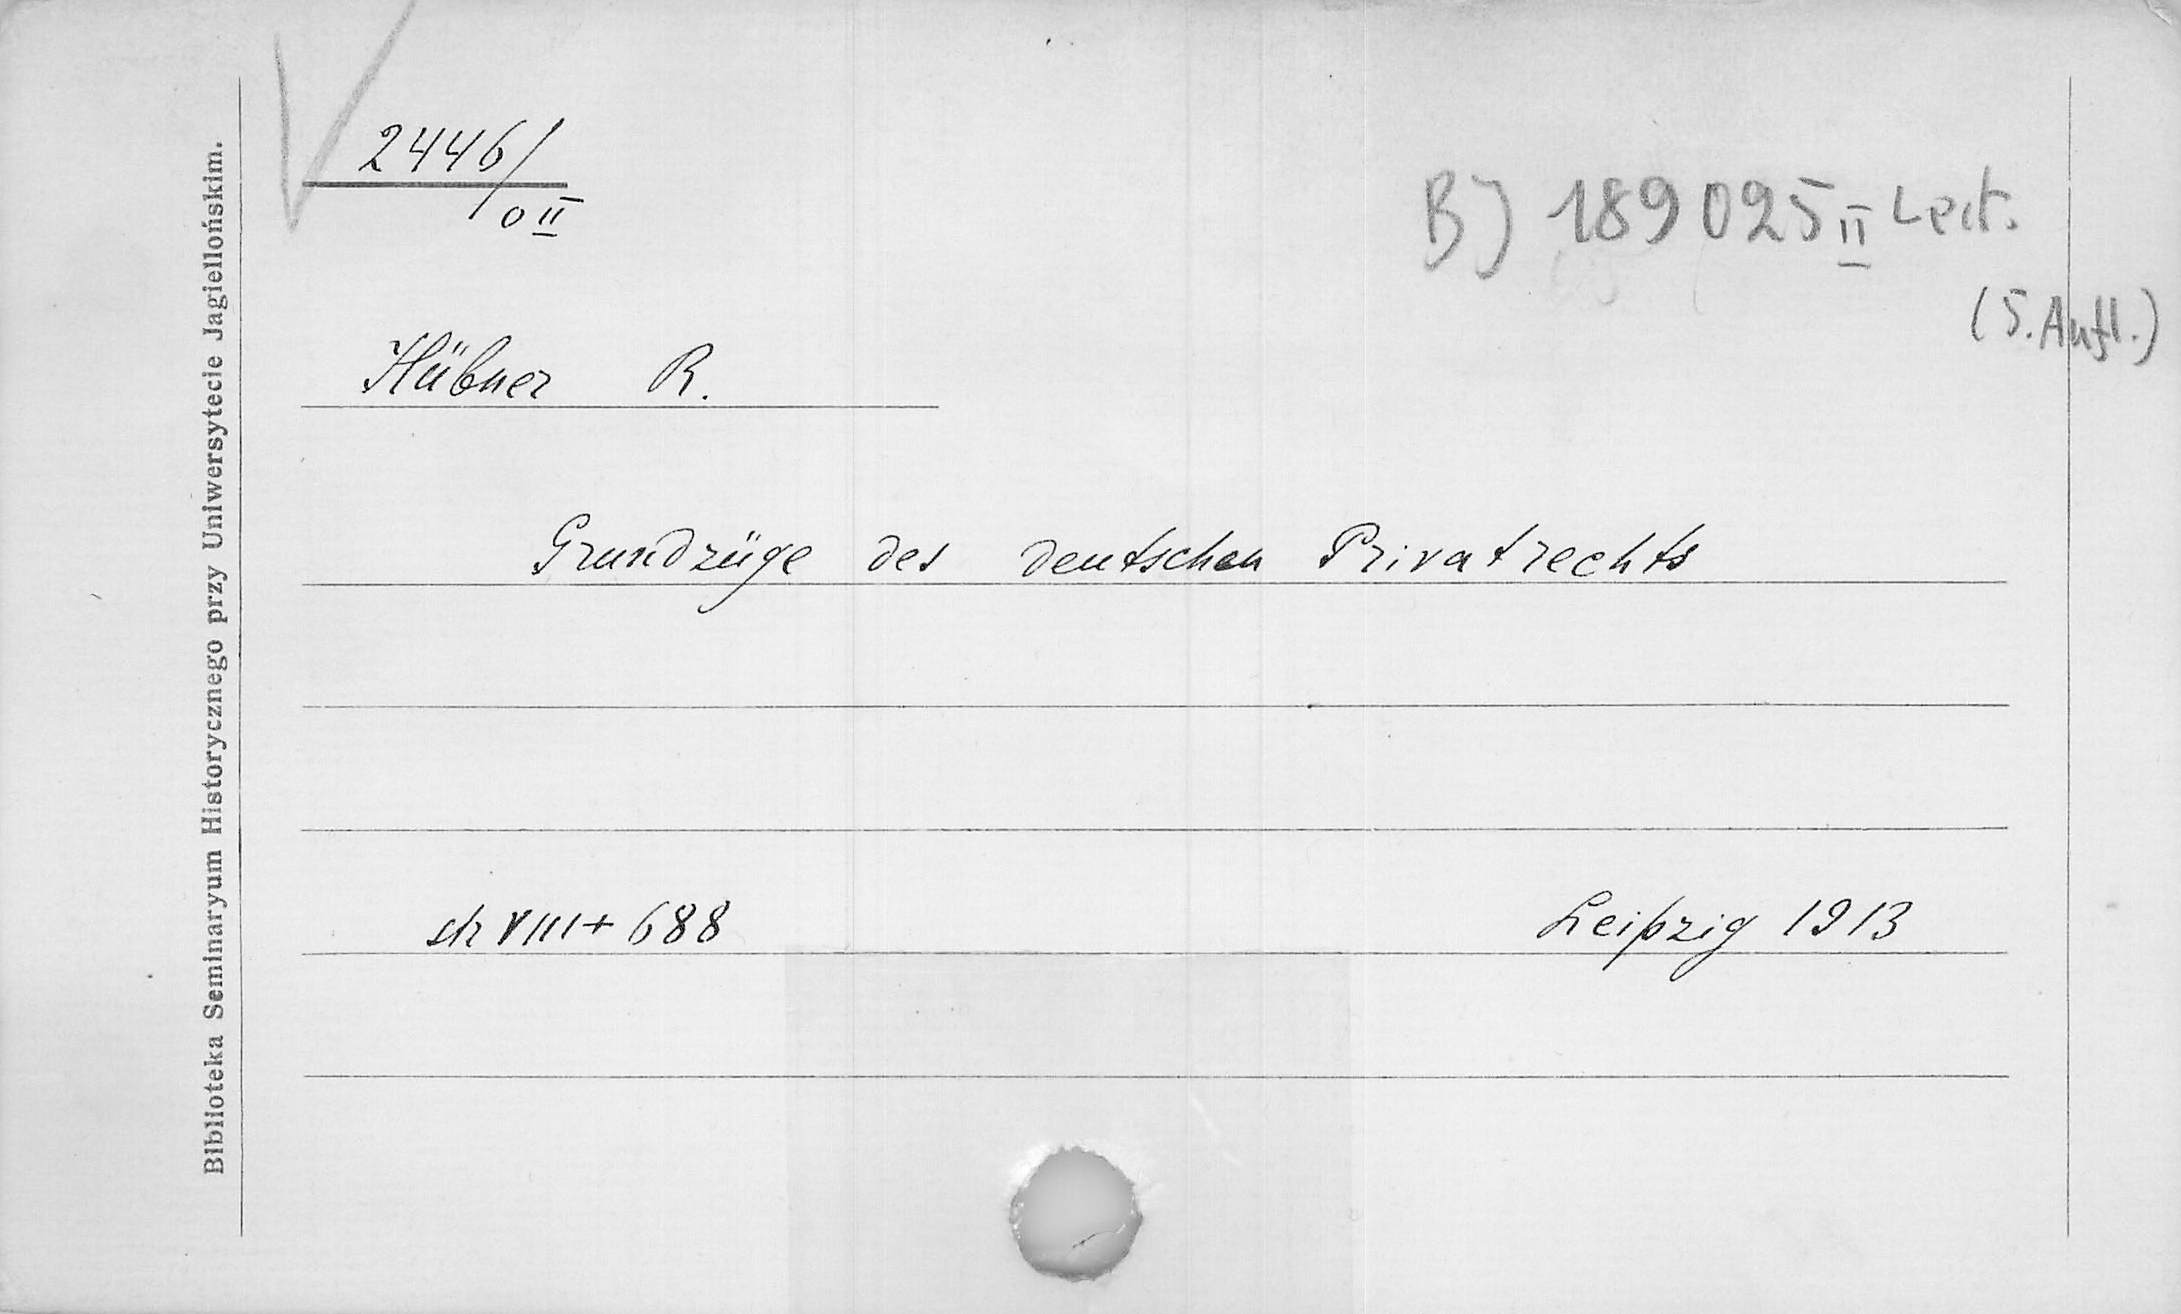 2446/
0 II
B) 189 025 II Lect.
(5. Aufl.)
Hübner R.
Grundzüge des deutschen Privatrechts
str VIII + 688 Leipzig 1913
Biblioteka Seminaryum Historycznego przy Uniwersytecie Jagiellońskim.